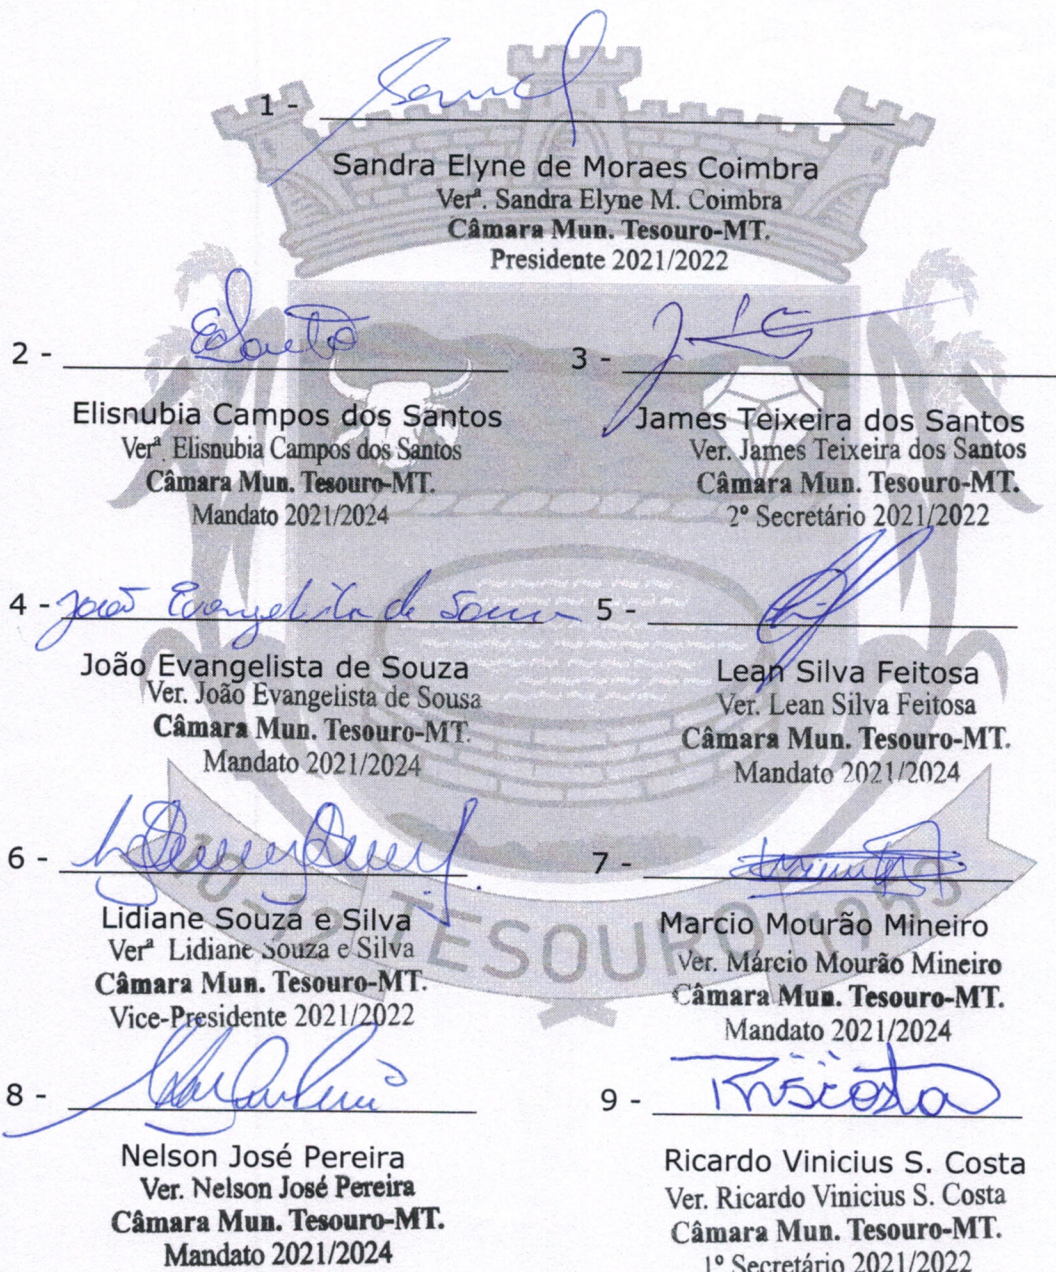 1 -
Sandra Elyne de Moraes Coimbra
Verª. Sandra Elyne M. Coimbra
Câmara Mun. Tesouro-MT.
Presidente 2021/2022
2 -
Elisnubia Campos dos Santos
Verª. Elisnubia Campos dos Santos
Câmara Mun. Tesouro-MT.
Mandato 2021/2024
3 -
James Teixeira dos Santos
Ver. James Teixeira dos Santos
Câmara Mun. Tesouro-MT.
2º Secretário 2021/2022
4 - João Evangelista de Sousa
João Evangelista de Souza
Ver. João Evangelista de Sousa
Câmara Mun. Tesouro-MT.
Mandato 2021/2024
5 -
Lean Silva Feitosa
Ver. Lean Silva Feitosa
Câmara Mun. Tesouro-MT.
Mandato 2021/2024
6 -
Lidiane Souza e Silva
Verª Lidiane Souza e Silva
Câmara Mun. Tesouro-MT.
Vice-Presidente 2021/2022
7 -
Marcio Mourão Mineiro
Ver. Márcio Mourão Mineiro
Câmara Mun. Tesouro-MT.
Mandato 2021/2024
TESOURO
8 -
Nelson José Pereira
Ver. Nelson José Pereira
Câmara Mun. Tesouro-MT.
Mandato 2021/2024
9 -
Ricardo Vinicius S. Costa
Ver. Ricardo Vinicius S. Costa
Câmara Mun. Tesouro-MT.
1º Secretário 2021/2022